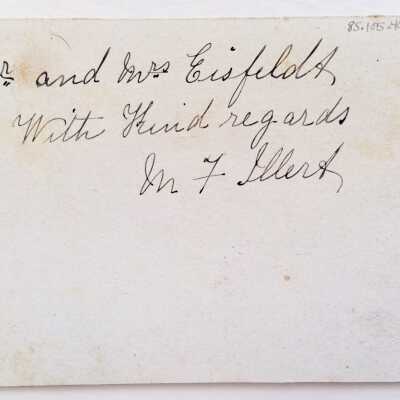 r and Mrs Eisfeldt,
With Kind regards
M F Illert,